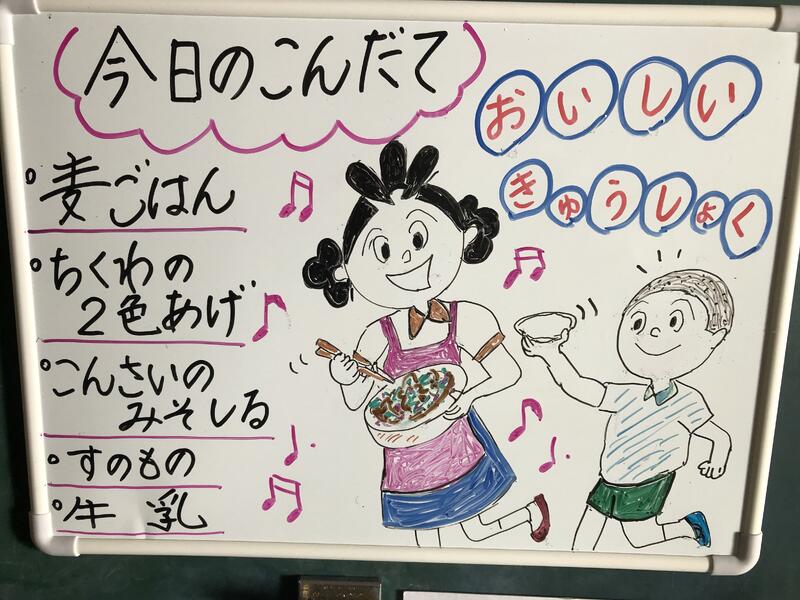 今日のこんだて
おいしい
きゅうしょく
麦ごはん
ちくわの
2色あげ
こんさいの
みそしる
すのもの
牛乳